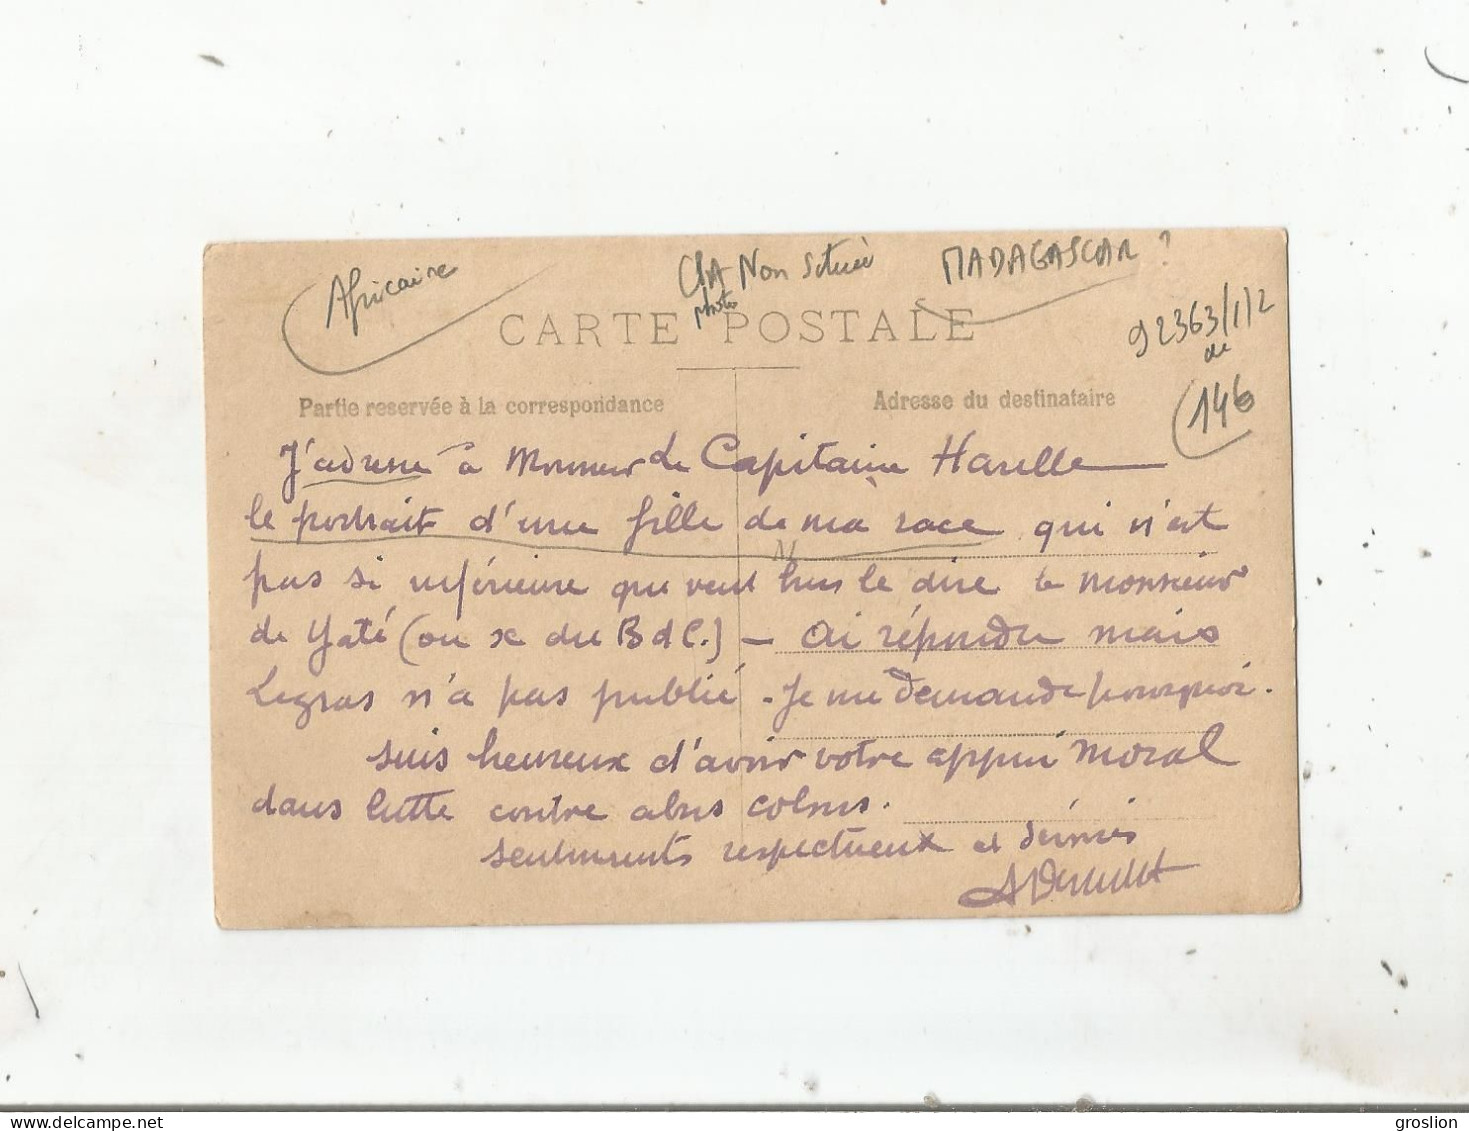 Africaine
CPA Non Située
photo
MADAGASCAR ?
92363/1/2
de
146
CARTE POSTALE
Partie reservée à la correspondance
Adresse du destinataire
J'adresse à Monsieur le Capitaine Harelle
le portrait d'une fille de ma race qui n'est
pas si inférieure que veut bien le dire le Monsieur
de Yaté (ou x du B d C.) — Ai répondu mais
Legras n'a pas publié. Je me demande pourquoi.
suis heureux d'avoir votre appui moral
dans lutte contre abus colons.
sentiments respectueux et
groslion